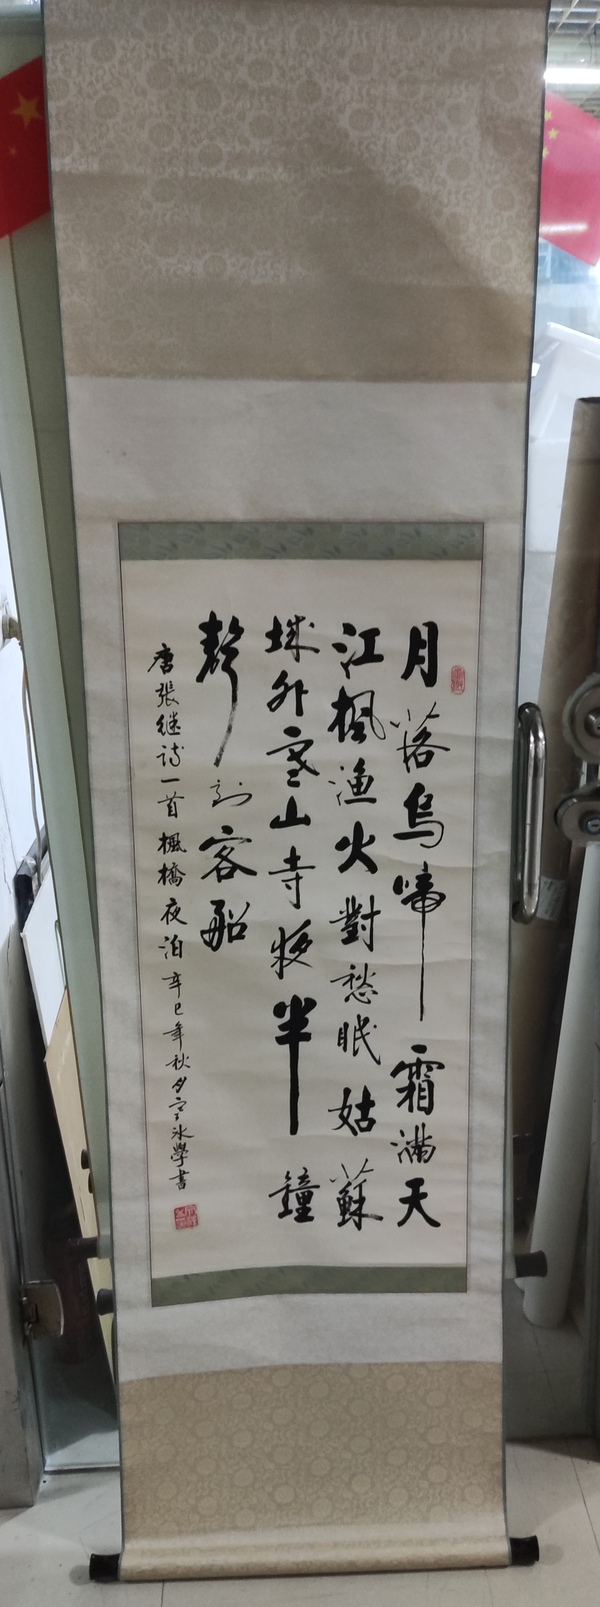 月落烏啼霜滿天
江楓漁火對愁眠姑蘇
城外寒山寺夜半鐘
聲到客船
唐張继诗一首楓橋夜泊辛巳年秋冰學書